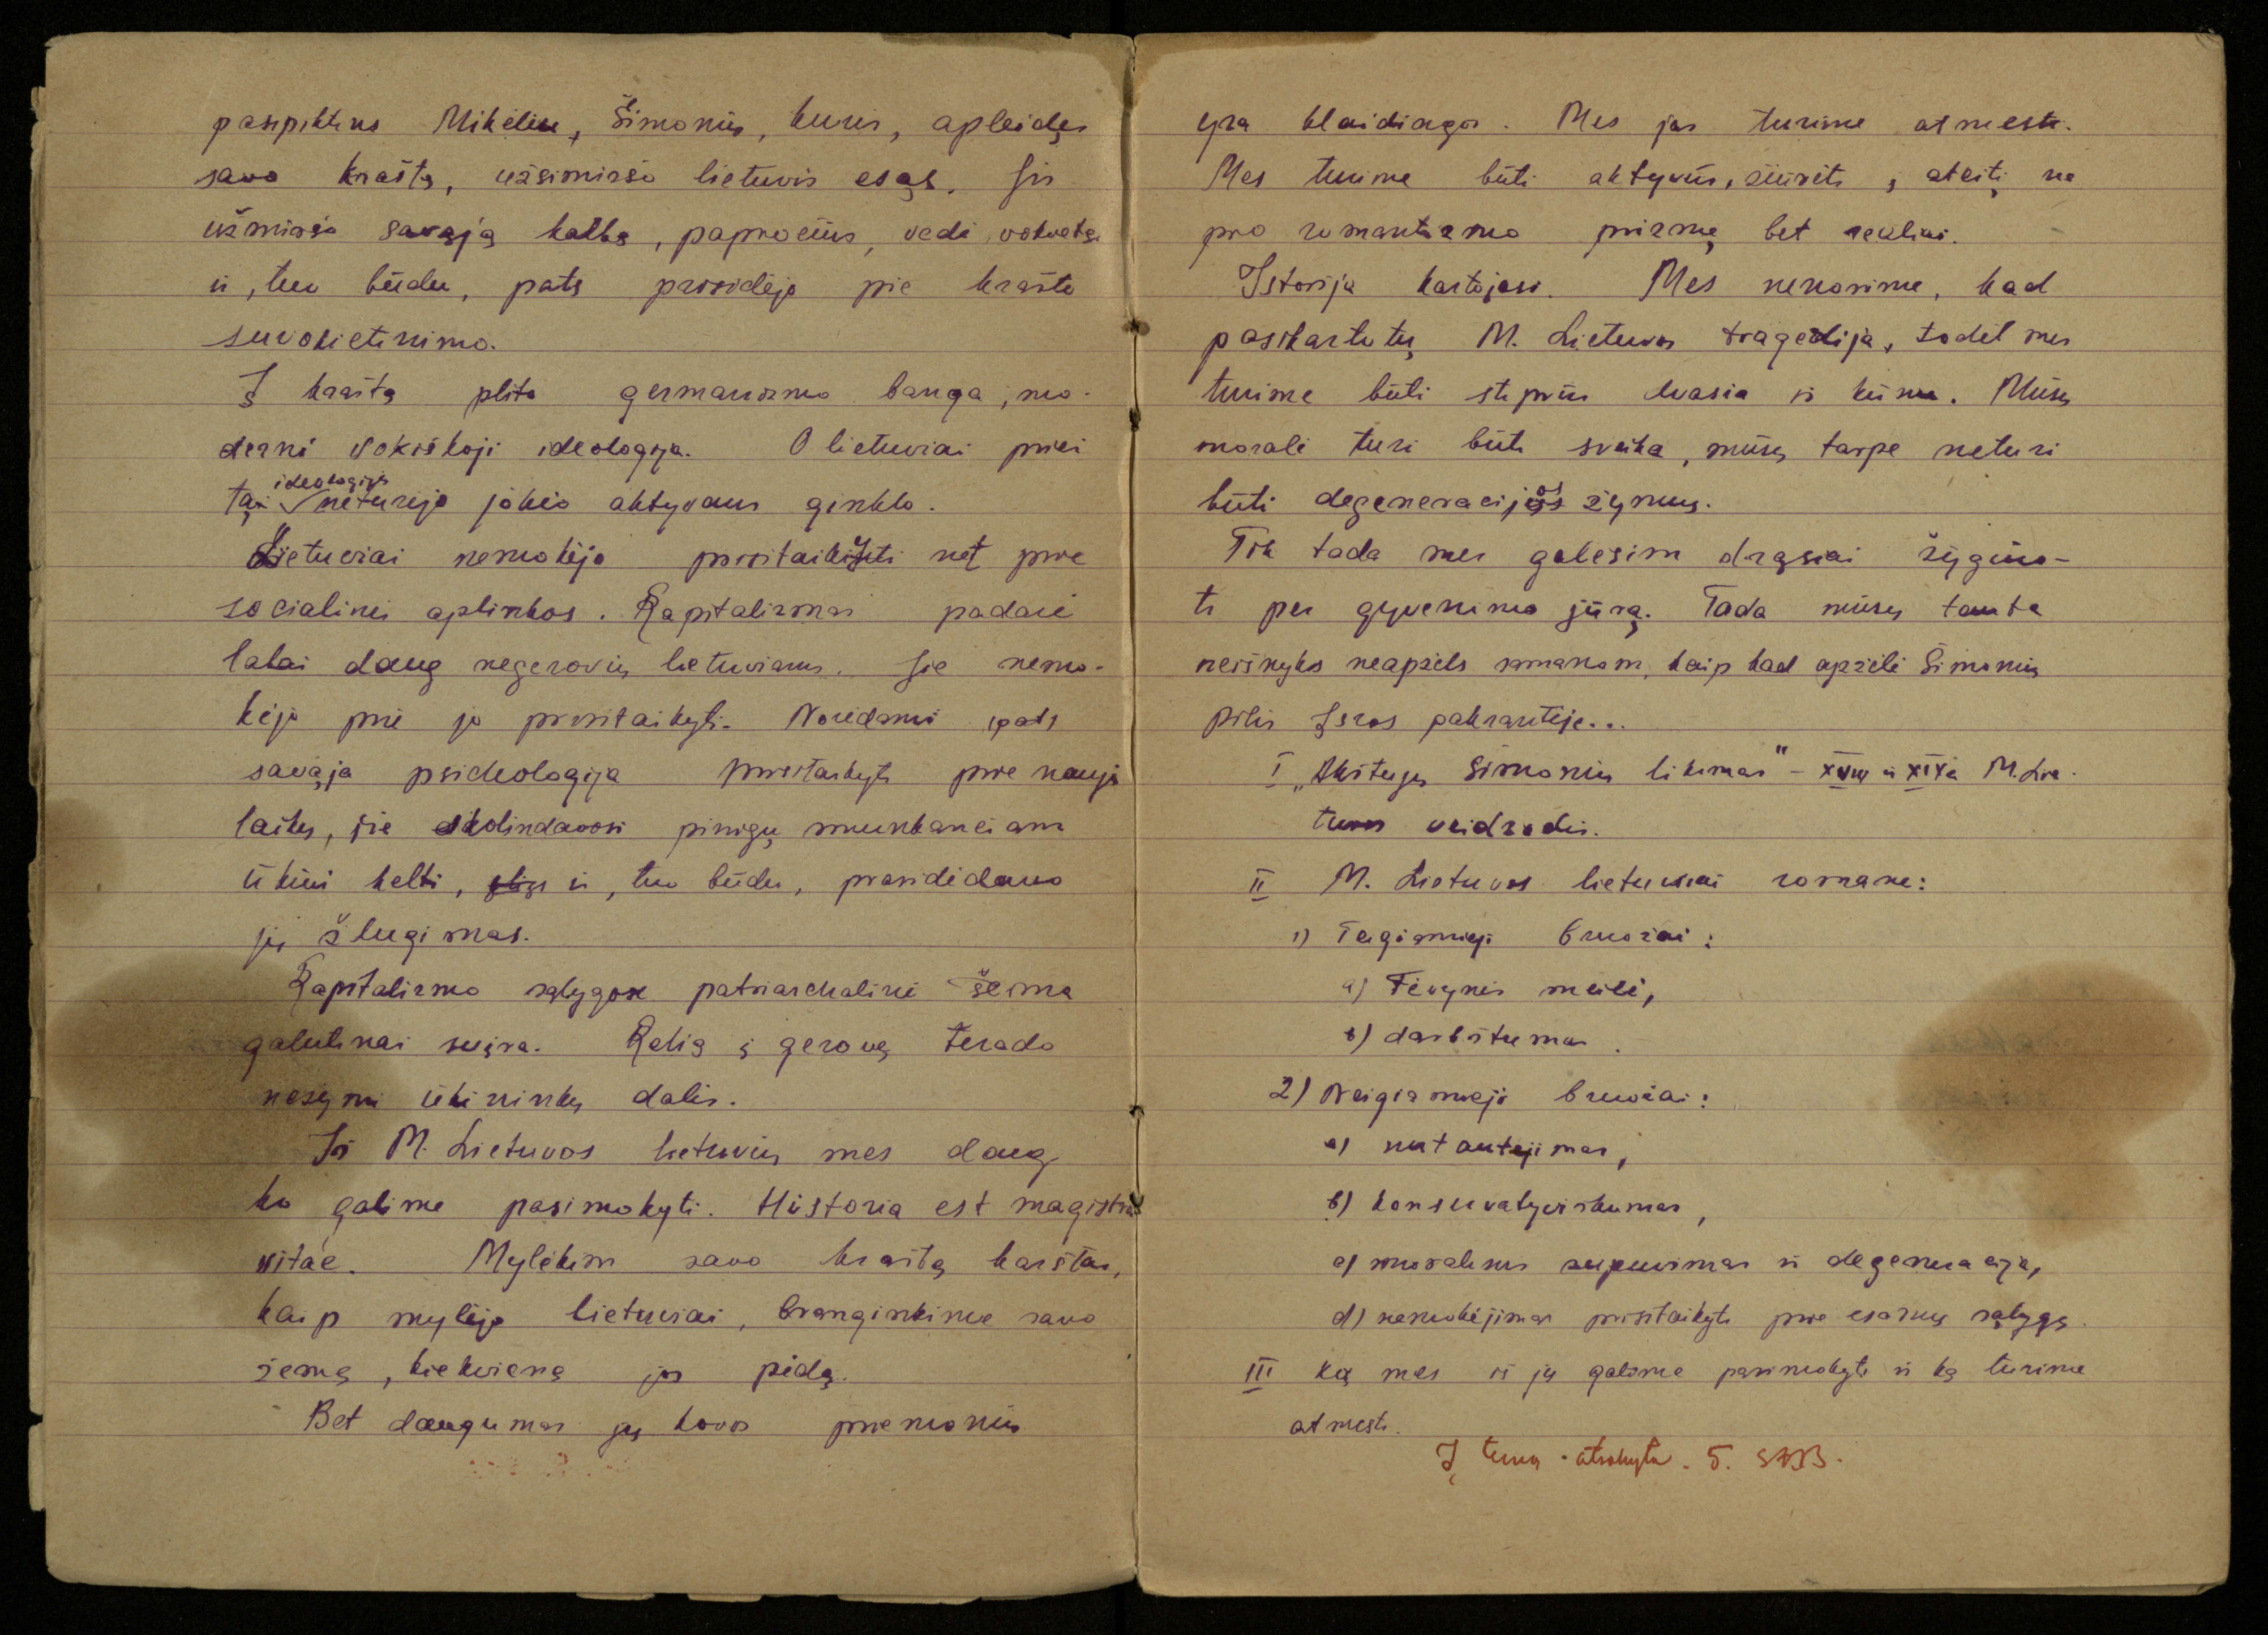 pasipiktino Mikėliu, Šimonių, kuris, apleidęs
savo kraštą, užsimiršo lietuvis esąs. Jis
užmiršo savąją kalbą, papročius, vedė vokietę
ir, tuo būdu, pats prisidėjo prie krašto
suvokietinimo.
Į kraštą plito germanizmo banga, mo-
derni vokiškoji ideologija. O lietuviai prieš
tai ideologijai neturėjo jokio aktyvaus ginklo.
Lietuviai nemokėjo prisitaikyti net prie
socialinės aplinkos. Kapitalizmas padarė
labai daug negerovių lietuviams. Jie nemo-
kėjo prie jo prisitaikyti. Norėdami
savąja psichologija prisitaikyti prie naujo
laikų, jie skolindavosi pinigų smunkančiam
ūkiui kelti, ir, tuo būdu, prasidėdavo
jų žlugimas.
Kapitalizmo sąlygose patriarchalinė šeima
galutinai suįra. Kelią į gerovę terado
nežymi ūkininkų dalis.
Iš M. Lietuvos lietuvių mes daug
ko galime pasimokyti. Historia est magistra
vitae. Mylėkim savo kraštą karštai,
kaip mylėjo lietuviai, branginkime savo
žemę, kiekvieną jos pėdą.
Bet daugumas jų kovos priemonių
yra klaidingos. Mes jas turime atmesti.
Mes turime būti aktyvūs, žiūrėti į ateitį ne
pro romantizmo prizmę bet realiai.
Istorija kartojasi. Mes nenorime, kad
pasikartotų M. Lietuvos tragedija, todėl mes
turime būti stiprūs dvasia ir kūnu. Mūsų
moralė turi būti sveika, mūsų tarpe neturi
būti degeneracijos žymių.
Tik tada mes galėsim drąsiai žygiuo-
ti per gyvenimo jūrą. Tada mūsų tauta
neišnyks neapžels samanom, kaip kad apžėlė Šimonių
pilis Įsros pakrantėje...
I „Aukštujų Šimonių likimas" - XVIII ir XIX a. M. Lie-
tuvos veidrodis.
II M. Lietuvos lietuviai romane:
1) Teigiamieji bruožai:
a) Tėvynės meilė,
b) darbštumas.
2) Neigiamieji bruožai:
a) nutautėjimas,
b) konservatyviškumas,
c) moralinis supuvimas ir degeneracija,
d) nemokėjimas prisitaikyti prie esamų sąlygų.
III Ką mes iš jų galime pasimokyti ir ką turime
atmesti.
Į temą atsakyta. 5.